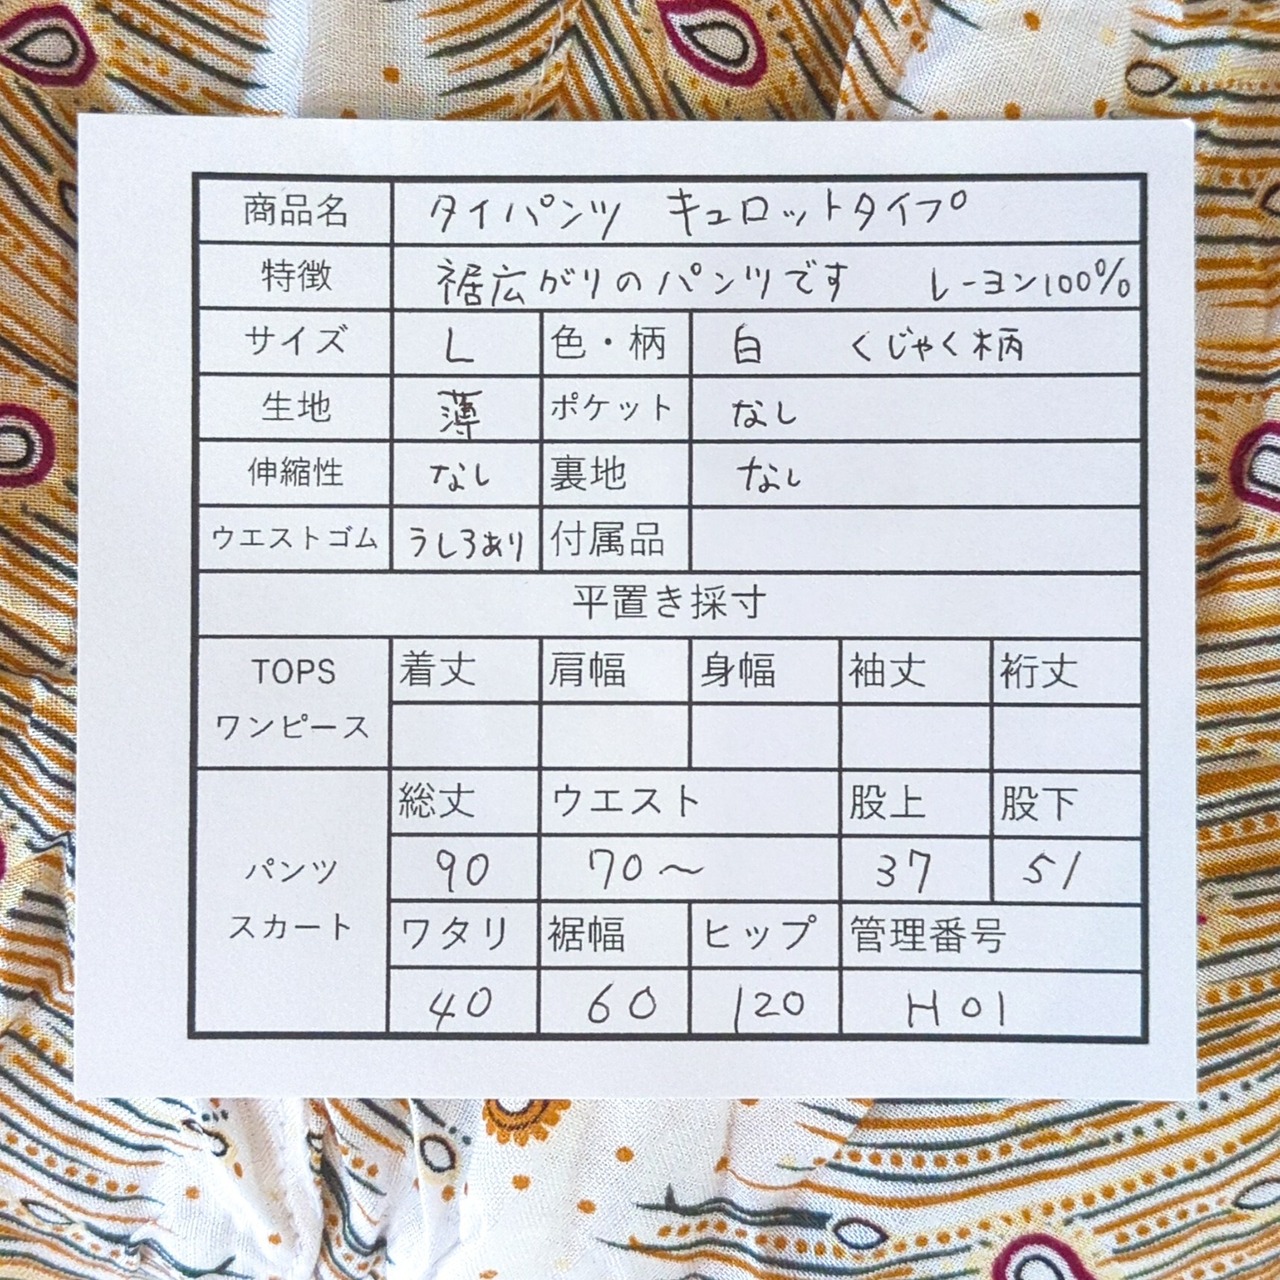 商品名 タイパンツ キュロットタイプ
特徴 裾広がりのパンツです レーヨン100%
サイズ L 色・柄 白 くじゃく柄
生地 薄 ポケット なし
伸縮性 なし 裏地 なし
ウエストゴム うしろあり 付属品
平置き採寸
TOPS ワンピース 着丈 肩幅 身幅 袖丈 裄丈
パンツ スカート 総丈 ウエスト 股上 股下
90 70〜 37 51
ワタリ 裾幅 ヒップ 管理番号
40 60 120 H01